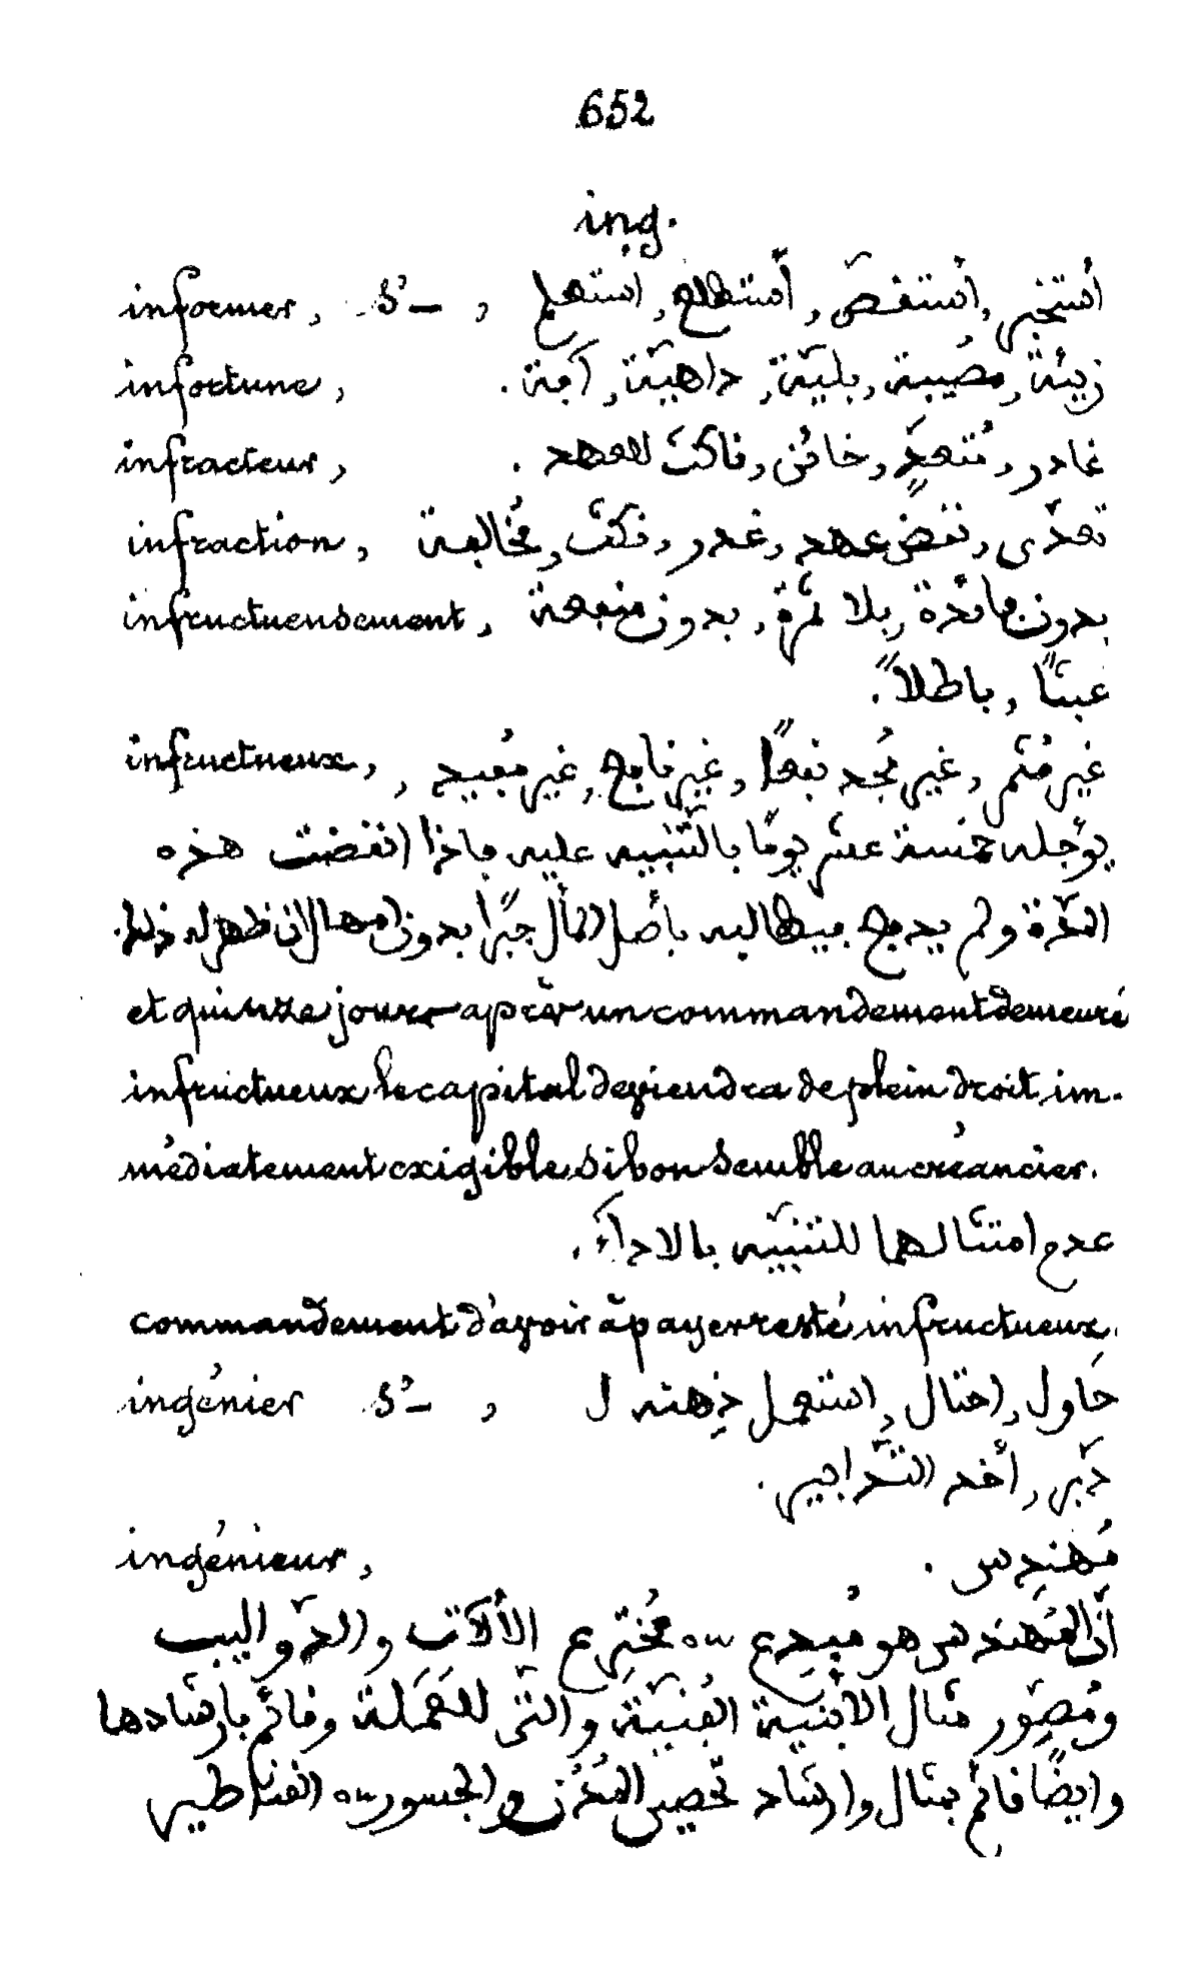 652
ing.
informer, s'— , أستخبر, أستفحص, أستطلع, استعلم
infortune, رزيئة, مصيبة, بليّة, داهيّة, آفة.
infracteur, غادر, مُتعدٍّ, خائن, ناكث للعهد.
infraction, تعدّى, نقض عهد, غدر, نكث, مُخالفة
infructueusement, بدون فائدة, بلا ثمرة, بدون منفعة
عبثاً, باطلاً.
infructueux, غير مُثمر, غير مُجد نفعاً, غير ناجح, غير مُفيد,
يؤجله خمسة عشر يومًا بالتّنبيه عليه فاذا انقضت هذه
المدّة ولم يدفع فيطالبه بأصل المال جبرًا بدون امهال ان ظهر له ذلك.
et quinze jours après un commandement demeuré
infructueux le capital deviendra de plein droit im-
médiatement exigible si bon semble au créancier.
عدم امتثالهما للتنبيّه بالاداء.
commandement d'avoir à payer resté infructueux.
ingénier s'— , حَاول, احتال, استعمل ذِهنه ل
دبّر, أخد التّدابير.
ingénieur, مُهندس.
انّ المُهندس هو مُبدِع ou مُختَرِع الألآت والدّواليب
ومُصَوِر مثال الأبنيّة الفنيّة والتّى للعَمَلة وقائم بارشادها
وايضًا قائم بمثال وارشاد تحصين المُدُن والجسور ou القناطير